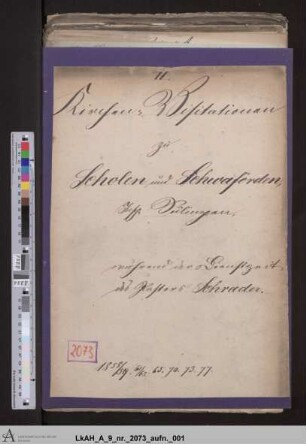 II.
Kirchen-Visitationen
zu
Scholen und Schwaförden,
Insp. Sulingen,
während der Dienstzeit
des Pastors Schrader.
2073
63. 70. 73. 77.
LkAH_A_9_nr._2073_aufn._001